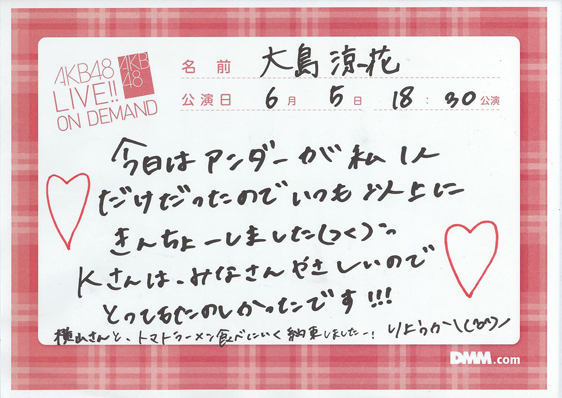 AKB48
LIVE!!
ON DEMAND
AKB
48
名前 大島涼花
公演日 6月 5日 18:30公演
今日はアンダーが私1人
だけだったのでいつも以上に
きんちょーしました(つく)っ
Kさんは、みなさんやさしいので
とってもたのしかったです!!!
横山さんと、トマトラーメン食べにいく約束しましたー! りょうか
DMM.com